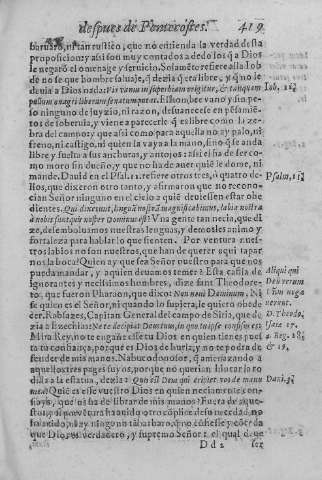 despues de Pentecostes. 419
barbaro, ni tan rustico, que no entienda la verdad desta
proposicion: y assi son muy contados a dedo los q̃ a Dios
le negarõ el omenage y seruicio. Solamẽte refiere alla Iob
de no se que hombre saluaje, q̃ dezia q̃ era libre, y q̃ no le
deuia a Dios nada: Vir vanus in superbiam erigitur, & tanquam Iob. 11.
pullum onagri liberum se natum putat. El hombre vano y sin pe-
so ninguno de juyzio, ni razon, desuanecese en pẽsamiẽ-
tos de soberuia, y viene a parecerle q̃ es libre como la ze-
bra del campo: y que assi como para aquella no ay palo, ni
freno, ni castigo, ni quien la vaya a la mano, sino q̃ se anda
libre y suelta a sus anchuras, y antojos: assi el ha de ser co-
mo moro sin dueño, y que no ha de auer quiẽ le dome, ni
mande. Dauid en el Psal. 11. refiere otros tres, ò quatro de-
llos, que dixeron otro tanto, y afirmaron que no recono-
cian Señor ninguno en el cielo a quiẽ deuiessen estar obe
dientes. Qui dixerunt, linguã nostrã magnificabimus, labia nostra
à nobis sunt, quis noster Dominus est? Vna gente tan necia, que di-
ze, desemboluamos nuestras lenguas, y demosles animo y
fortaleza para hablar lo que sienten. Por ventura nues-
tros labios no son nuestros, que han de querer aqui tapar
nos la boca? Quien ay que sea Señor nuestro para que nos
pueda mandar, y aquien deuamos temer? Esta casta de
ignorantes y necissimos hombres, dize sant Theodore-
to, que fueron Pharaon, que dixo: Nescio Dominum. No
se quien es el Señor, ni quando lo supiera, le quiero obede
cer. Robsazes, Capitan General del campo de Siria, que de
zia a Ezechias: Ne te decipiat Dominus, in quo tu ipse confisus es:
Mira Rey, no te engañe esse tu Dios en quien tienes pues
ta tu confiança, porque es Dios de burla, y no te podra de
fender de mis manos. Nabucodonosor, q̃ amenazando a
aquellos tres pajes suyos, porque no querian
dilla a la estatua, dezia: Quis est Deus qui eripiet vos de manu Dani. 3.
mea? Quiẽ es esse vuestro Dios en quien neciamente con-
que os ha de librar de mis manos? Fuera de aque-
stos, si por ventura ha auido otro complice desta necedad, no
ha auido, ni ay ninguno tã barbaro, que no cõfiesse y cõceda
que Dios es verdadero, y supremo Señor: el qual deue
Dd 2 ser
Psalm. 11.
Aliqui qui
Deũ verum
D. Theodo.
Isaiæ 37.
4. Reg. 18.
& 19.